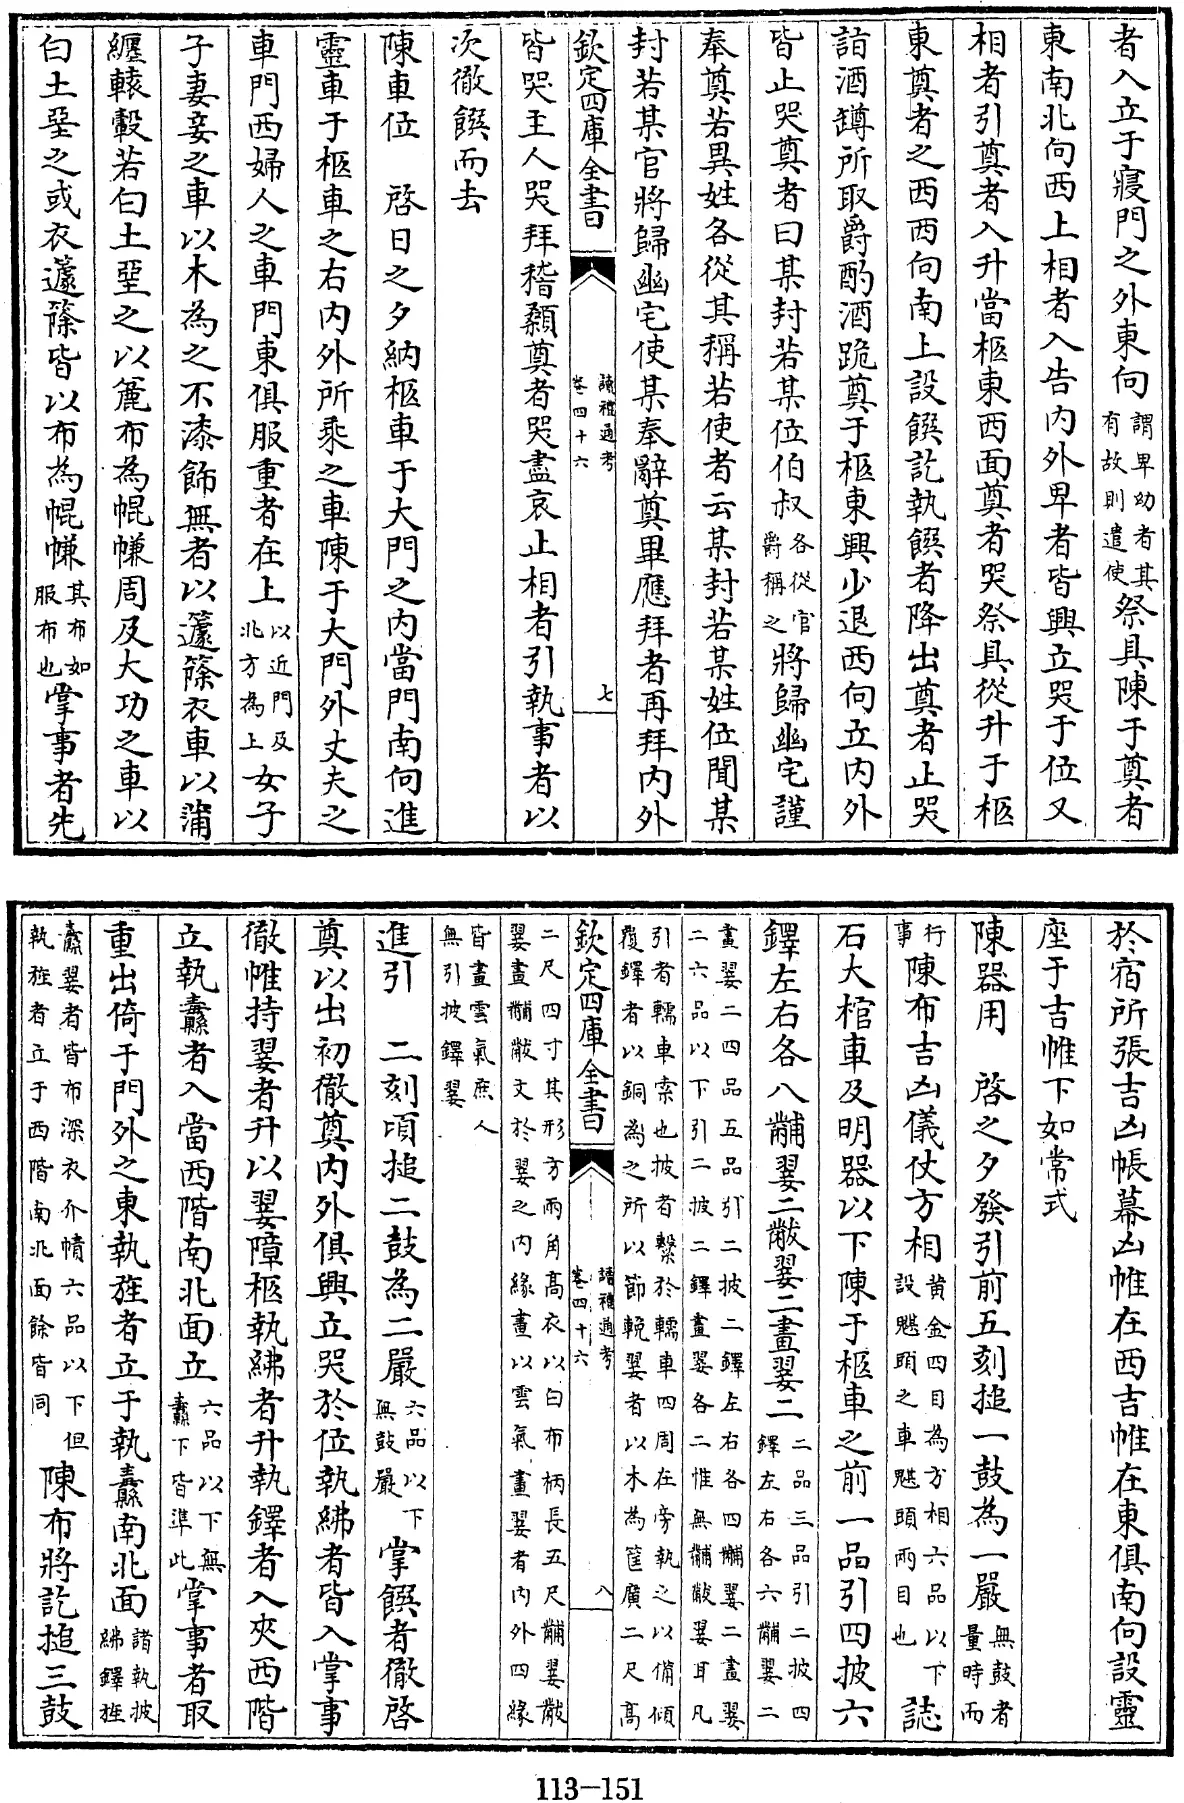 者入立于寢門之外東向謂卑幼者其有故則遣使祭具陳于奠者
東南北向西上相者入告内外卑者皆興立哭于位又
相者引奠者入升當柩東西面奠者哭祭具從升于柩
東奠者之西西向南上設饌訖執饌者降出奠者止哭
詣酒罇所取爵酌酒跪奠于柩東興少退西向立内外
皆止哭奠者曰某封若某位伯叔各從官爵稱之將歸幽宅謹
奉奠若異姓各從其稱若使者云某封若某姓位聞某
封若某官將歸幽宅使某奉辭奠畢應拜者再拜内外
欽定四庫全書
讀禮通考
卷四十六
七
皆哭主人哭拜稽顙奠者哭盡哀止相者引執事者以
次徹饌而去
陳車位　啓日之夕納柩車于大門之内當門南向進
靈車于柩車之右内外所乘之車陳于大門外丈夫之
車門西婦人之車門東俱服重者在上以近門及北方為上女子
子妻妾之車以木為之不漆飾無者以籧篨衣車以蒲
纏轅轂若白土堊之以麄布為幌幨周及大功之車以
白土堊之或衣籧篨皆以布為幌幨其布如服布也掌事者先
於宿所張吉凶帳幕凶帷在西吉帷在東俱南向設靈
座于吉帷下如常式
陳器用　啓之夕發引前五刻搥一鼓為一嚴無鼓者量時而
行事陳布吉凶儀仗方相黄金四目為方相六品以下設魌頭之車魌頭兩目也誌
石大棺車及明器以下陳于柩車之前一品引四披六
鐸左右各八黼翣二黻翣二畫翣二二品三品引二披四鐸左右各六黼翣二
畫翣二四品五品引二披二鐸左右各四黼翣二畫翣
二六品以下引二披二鐸畫翣各二惟無黼黻翣耳凡
引者轜車索也披者繫於轜車四周在旁執之以備傾
覆鐸者以銅為之所以節輓翣者以木為筐廣二尺高
欽定四庫全書
讀禮通考
卷四十六
八
二尺四寸其形方兩角高衣以白布柄長五尺黼翣黻
翣畫黼黻文於翣之内緣畫以雲氣畫翣者内外四緣
皆畫雲氣庶人
無引披鐸翣
進引　二刻頃搥二鼓為二嚴六品以下無鼓嚴掌饌者徹啓
奠以出初徹奠内外俱興立哭於位執紼者皆入掌事
徹帷持翣者升以翣障柩執紼者升執鐸者入夾西階
立執纛者入當西階南北面立六品以下無纛下皆準此掌事者取
重出倚于門外之東執旌者立于執纛南北面諸執披紼鐸旌
纛翣者皆布深衣介幘六品以下但執旌者立于西階南北面餘皆同陳布將訖搥三鼓
113—151